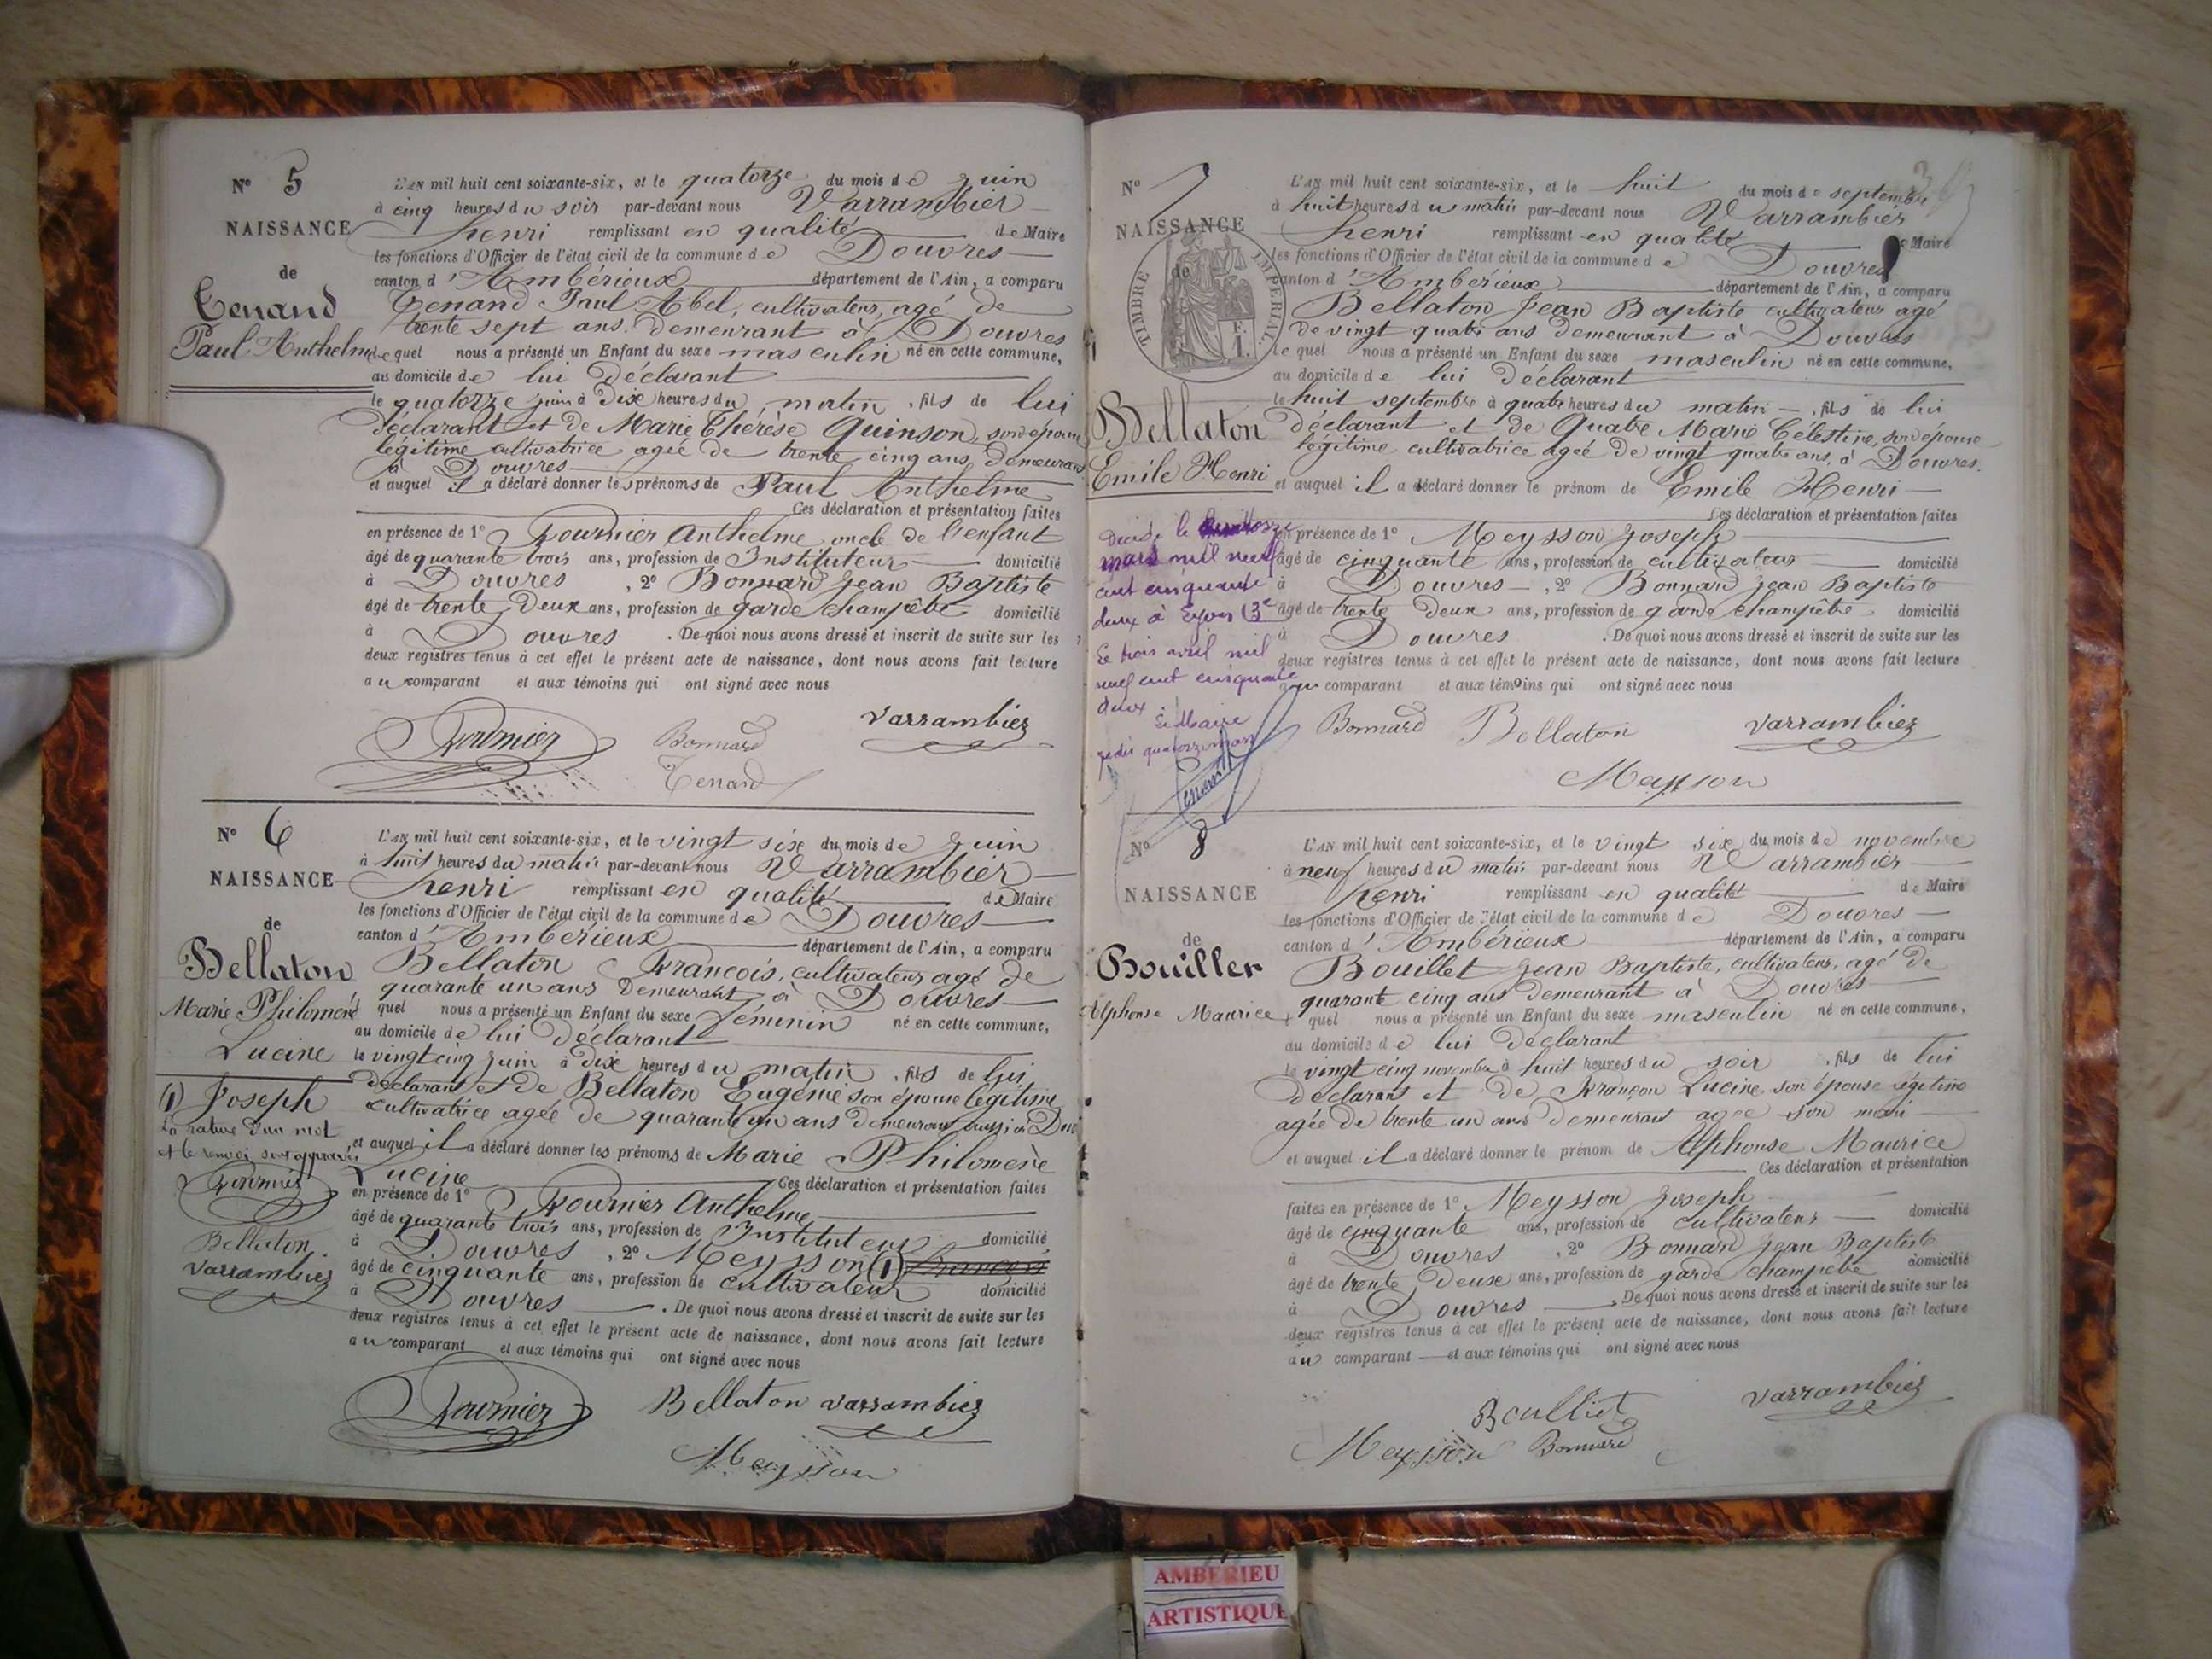 N° 5
NAISSANCE
de
Tenand
Paul Anthelme
L'AN mil huit cent soixante-six, et le quatorze du mois de Juin
à cinq heures du soir par-devant nous Varrambier
henri remplissant en qualité de Maire
les fonctions d'Officier de l'état civil de la commune de Douvres
canton d'Ambérieux département de l'Ain, a comparu
Tenand Paul Abel, cultivateur, agé de
trente sept ans demeurant à Douvres
le quel nous a présenté un Enfant du sexe masculin né en cette commune,
au domicile de lui déclarant
le quatorze juin à Dix heures du matin, fils de lui
déclarant et de Marie Thérèse Quinson, son épouse
légitime cultivatrice agée de trente cinq ans, demeurant
à Douvres
et auquel il a déclaré donner les prénoms de Paul Anthelme
Ces déclaration et présentation faites
en présence de 1° Fournier Anthelme oncle de l'enfant
âgé de quarante trois ans, profession de Instituteur domicilié
à Douvres, 2° Bonnard Jean Baptiste
âgé de trente Deux ans, profession de garde champêtre domicilié
à Douvres. De quoi nous avons dressé et inscrit de suite sur les
deux registres tenus à cet effet le présent acte de naissance, dont nous avons fait lecture
au comparant et aux témoins qui ont signé avec nous
Fournier Bonnard Varrambier
Tenand
N° 6
NAISSANCE
de
Bellaton
Marie Philomène
Lucine
(1) Joseph
La rature d'un mot
et le renvoi sont approuvés
Fournier
Bellaton
Varrambier
L'AN mil huit cent soixante-six, et le vingt six du mois de Juin
à huit heures du matin par-devant nous Varrambier
henri remplissant en qualité de Maire
les fonctions d'Officier de l'état civil de la commune de Douvres
canton d'Ambérieux département de l'Ain, a comparu
Bellaton François, cultivateur agé de
quarante un ans Demeurant à Douvres
quel nous a présenté un Enfant du sexe féminin né en cette commune,
au domicile de lui déclarant
le vingt cinq juin à Dix heures du matin, fils de lui
déclarant et de Bellaton Eugénie son épouse légitime
cultivatrice agée de quarante un ans demeurant aussi à Dou
et auquel il a déclaré donner les prénoms de Marie Philomène
Lucine Ces déclaration et présentation faites
en présence de 1° Fournier Anthelme
âgé de quarante trois ans, profession de Instituteur domicilié
à Douvres, 2° Meysson (1) François
âgé de cinquante ans, profession de cultivateur domicilié
à Douvres. De quoi nous avons dressé et inscrit de suite sur les
deux registres tenus à cet effet le présent acte de naissance, dont nous avons fait lecture
au comparant et aux témoins qui ont signé avec nous
Fournier Bellaton Varrambier
Meysson
N° 7
NAISSANCE
de
TIMBRE IMPERIAL
Bellaton
Emile Henri
Décédé le
mars mil neuf
cent cinquante
deux à Lyon (3e
Le trois avril mil
neuf cent cinquante
deux
Le Maire
L'AN mil huit cent soixante-six, et le huit du mois de septembre
à huit heures du matin par-devant nous Varrambier
henri remplissant en qualité de Maire
les fonctions d'Officier de l'état civil de la commune de Douvres
canton d'Ambérieux département de l'Ain, a comparu
Bellaton Jean Baptiste cultivateur agé
de vingt quatre ans demeurant à Douvres
le quel nous a présenté un Enfant du sexe masculin né en cette commune,
au domicile de lui déclarant
le huit septembre à quatre heures du matin, fils de lui
déclarant et de Quatre Marie Célestine, son épouse
légitime cultivatrice agée de vingt quatre ans, à Douvres.
et auquel il a déclaré donner le prénom de Emile Henri
Ces déclaration et présentation faites
en présence de 1° Meysson Joseph
âgé de cinquante ans, profession de cultivateur domicilié
à Douvres, 2° Bonnard Jean Baptiste
âgé de trente Deux ans, profession de garde champêtre domicilié
à Douvres. De quoi nous avons dressé et inscrit de suite sur les
deux registres tenus à cet effet le présent acte de naissance, dont nous avons fait lecture
au comparant et aux témoins qui ont signé avec nous
Bonnard Bellaton Varrambier
Meysson
N° 8
NAISSANCE
de
Bouiller
Alphonse Maurice
L'AN mil huit cent soixante-six, et le vingt six du mois de novembre
à neuf heures du matin par-devant nous Varrambier
henri remplissant en qualité de Maire
les fonctions d'Officier de l'état civil de la commune de Douvres
canton d'Ambérieux département de l'Ain, a comparu
Bouillet Jean Baptiste, cultivateur, agé de
quarante cinq ans demeurant à Douvres
quel nous a présenté un Enfant du sexe masculin né en cette commune,
au domicile de lui déclarant
le vingt cinq novembre à huit heures du soir, fils de lui
déclarant et de Françon Lucine son épouse légitime
agée de trente un ans demeurant avec son mari
et auquel il a déclaré donner le prénom de Alphonse Maurice
Ces déclaration et présentation
faites en présence de 1° Meysson Joseph
âgé de cinquante ans, profession de cultivateur domicilié
à Douvres, 2° Bonnard Jean Baptiste
âgé de trente Deux ans, profession de garde champêtre domicilié
à Douvres De quoi nous avons dressé et inscrit de suite sur les
deux registres tenus à cet effet le présent acte de naissance, dont nous avons fait lecture
au comparant et aux témoins qui ont signé avec nous
Boulliet Varrambier
Meysson Bonnard
AMBERIEU
ARTISTIQUE